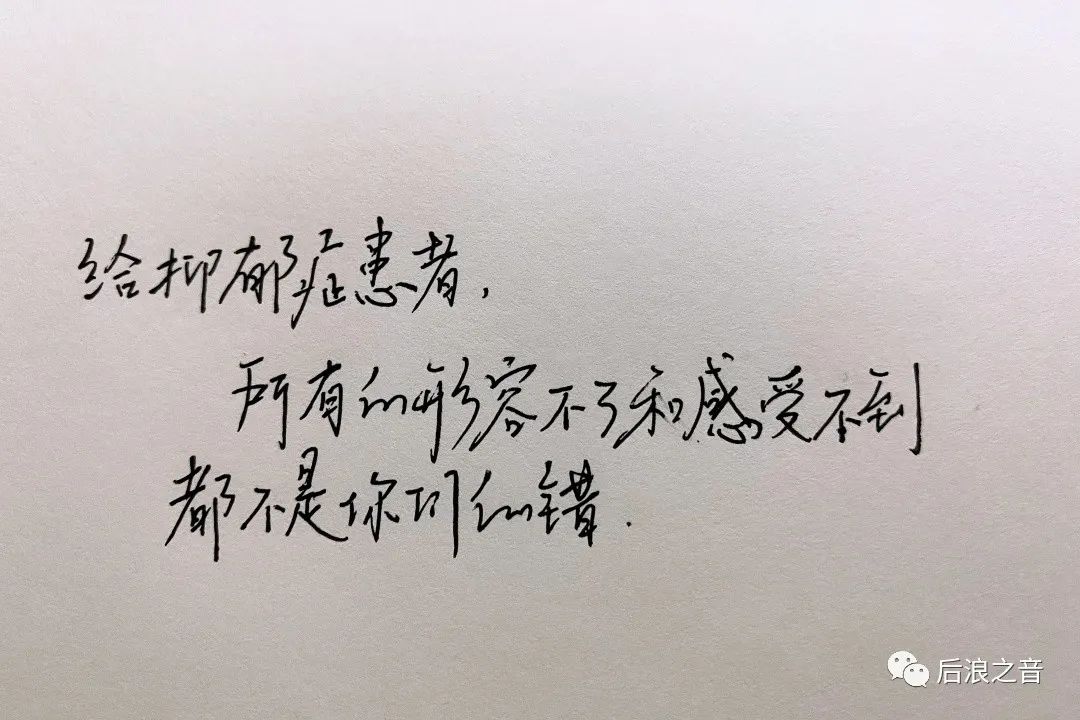 给抑郁症患者,
所有的形容不了和感受不到
都不是你们的错.
后浪之音